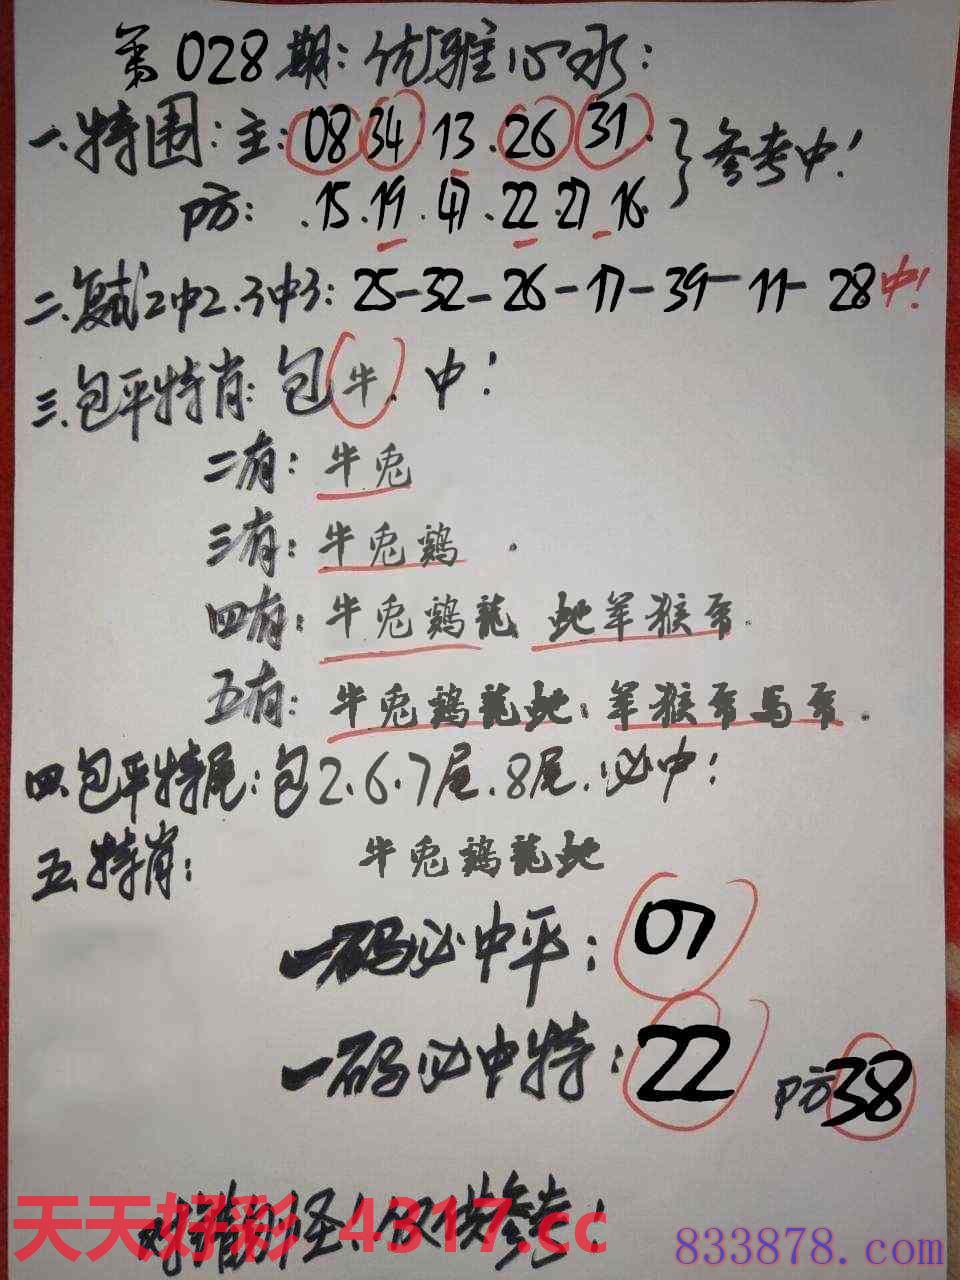 第028期:优雅心水:
一.特围:主:08 34.13.26 31. }参考中!
防:.15.19.47.22.27.16.
二.复式2中2.3中3:25-32-26-17-39-11-28中!
三.包平特肖:包牛.中!
二有:牛兎
三有:牛兎鷄.
四有:牛兎鷄龍 蛇羊猴
五有:牛兎鷄龍蛇.羊猴 馬
四.包平特尾:包2.6.7尾.8尾.必中!
五.特肖: 牛兎鷄龍蛇
一码必中平:07
一码必中特:22 防38
仅供参考!
天天好彩 4317.cc
833878.com